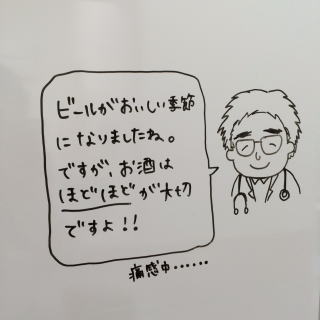 ビールがおいしい季節
になりましたね。
ですが、お酒は
ほどほどが大切
ですよ！！
痛感中……